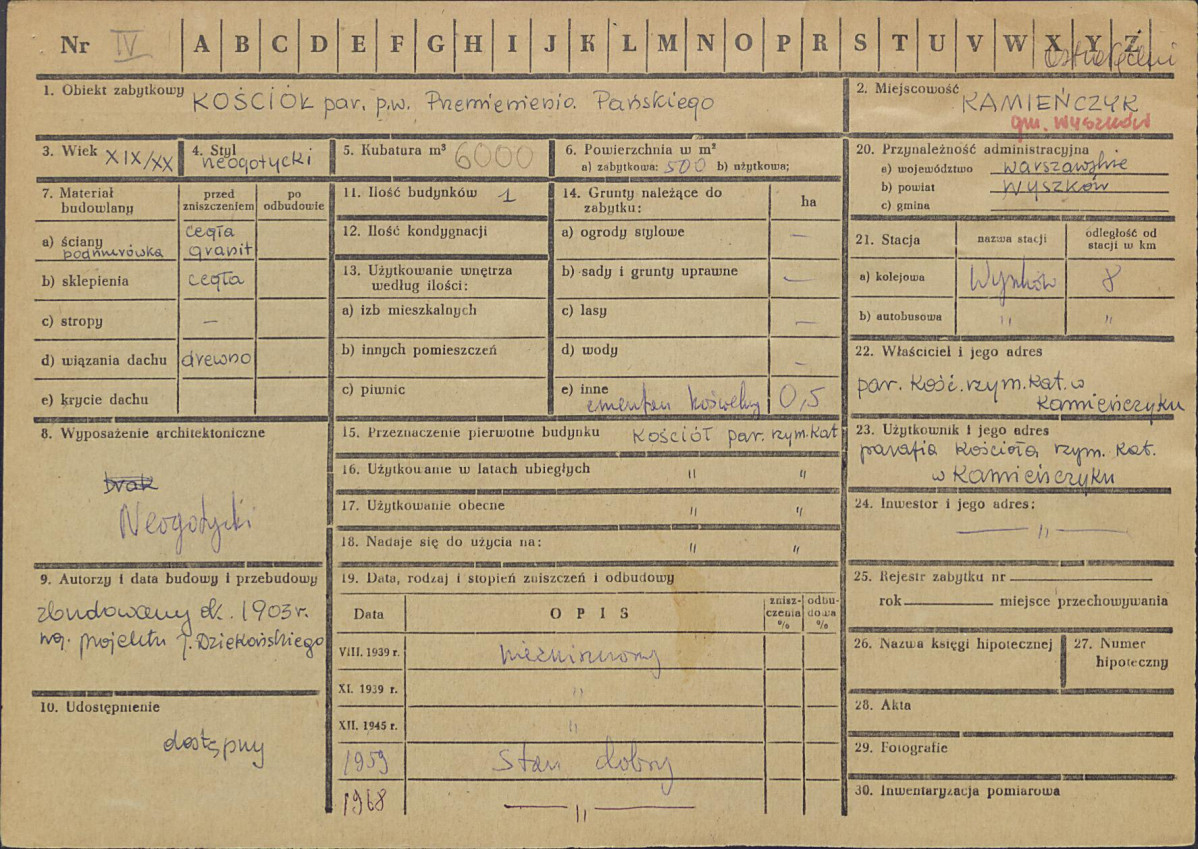 Nr IV A B C D E F G H I J K L M N O P R S T U V W X Y Z
1. Obiekt zabytkowy KOŚCIÓŁ par. p.w. Przemienienia Pańskiego
2. Miejscowość KAMIEŃCZYK
gm. WYSZKÓW
3. Wiek XIX/XX
4. Styl neogotycki
5. Kubatura m³ 6000
6. Powierzchnia w m²
a) zabytkowa: 500 b) użytkowa;
7. Materiał budowlany
przed zniszczeniem
po odbudowie
a) ściany cegła
podmurówka granit
b) sklepienia cegła
c) stropy —
d) wiązania dachu drewno
e) krycie dachu
8. Wyposażenie architektoniczne
brak
Neogotycki
9. Autorzy i data budowy i przebudowy
zbudowany ok. 1903 r.
wg. projektu J. Dziekońskiego
10. Udostępnienie
dostępny
11. Ilość budynków 1
12. Ilość kondygnacji
13. Użytkowanie wnętrza
według ilości:
a) izb mieszkalnych
b) innych pomieszczeń
c) piwnic
14. Grunty należące do
zabytku:
ha
a) ogrody stylowe —
b) sady i grunty uprawne —
c) lasy —
d) wody —
e) inne
cmentarz kościelny 0,5
15. Przeznaczenie pierwotne budynku KOŚCIÓŁ par. rzym. kat
16. Użytkowanie w latach ubiegłych " "
17. Użytkowanie obecne " "
18. Nadaje się do użycia na: " "
19. Data, rodzaj i stopień zniszczeń i odbudowy
Data
OPIS
znisz-
czenia
%
odbu-
dowa
%
VIII. 1939 r. niezniszczony
XI. 1939 r. "
XII. 1945 r. "
1959 Stan dobry
1968 — " —
20. Przynależność administracyjna
a) województwo warszawskie
b) powiat Wyszków
c) gmina
21. Stacja
nazwa stacji
odległość od
stacji w km
a) kolejowa Wyszków 8
b) autobusowa " "
22. Właściciel i jego adres
par. Kość. rzym. kat. w
Kamieńczyku
23. Użytkownik i jego adres
parafia Kościoła rzym. kat.
w Kamieńczyku
24. Inwestor i jego adres:
— " —
25. Rejestr zabytku nr
rok miejsce przechowywania
26. Nazwa księgi hipotecznej
27. Numer
hipoteczny
28. Akta
29. Fotografie
30. Inwentaryzacja pomiarowa